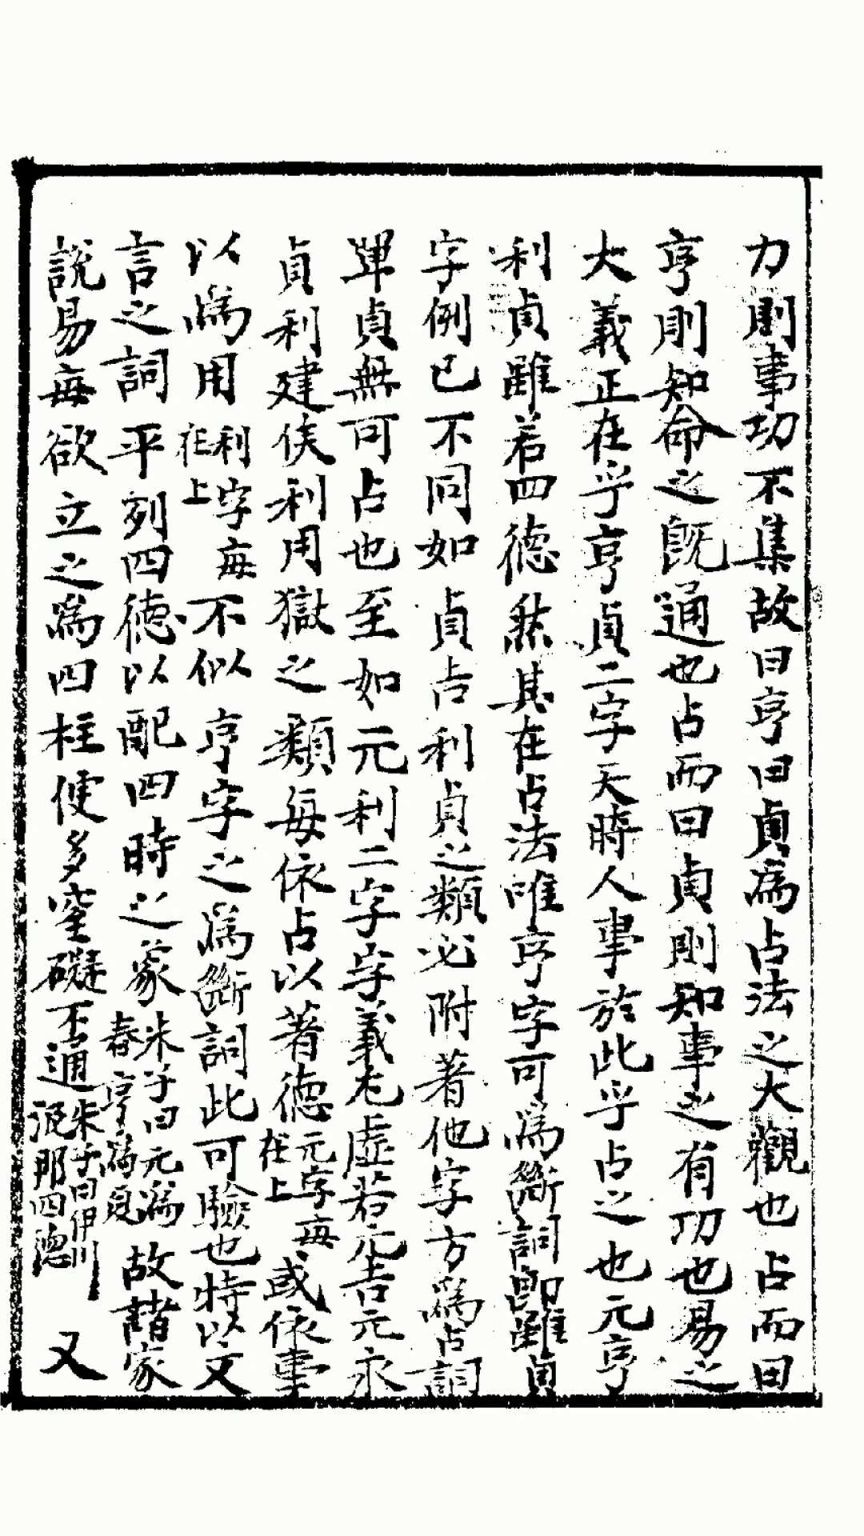 力則事功不集故曰亨曰貞爲占法之大觀也占而曰
亨則知命之旣通也占而曰貞則知事之有功也易之
大義正在乎亨貞二字天時人事於此乎占之也元亨
利貞雖若四德然其在占法唯亨字可爲斷詞卽雖貞
字例已不同如貞吉利貞之類必附著他字方爲占詞
單貞無可占也至如元利二字字義尤虛若元吉元永
貞利建侯利用獄之類每依占以著德元字每在上或依事
以爲用利字每在上不似亨字之爲斷詞此可驗也特以文
言之詞平列四德以配四時之象朱子曰元爲春亨爲夏故諸家
說易每欲立之爲四柱使多窒礙不通朱子曰伊川泥那四德又